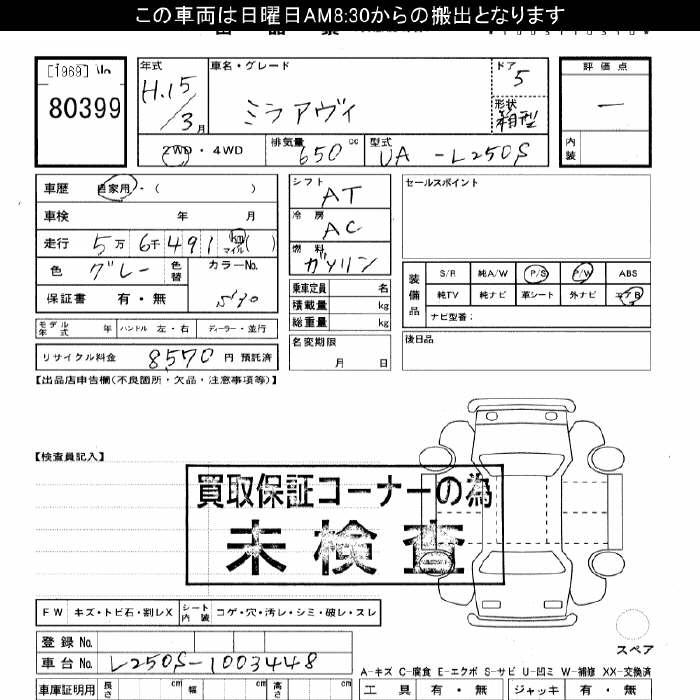 この車両は日曜日AM8:30からの搬出となります
[1969]
80399
年式
H.15/3月
車名・グレード
ミラアヴィ
ドア
5
形状
箱型
評価点
—
内装
2WD・4WD
排気量
650 cc
型式
UA-L250S
車歴 自家用・( )
車検 年 月
走行 5万6千491 km マイル ( )
色 グレー
色替
カラーNo.
S30
保証書 有・無
モデル年式 年
ハンドル 左・右
ディーラー・並行
リサイクル料金 8570 円 預託済
シフト
AT
冷房
AC
燃料
ガソリン
乗車定員 名
積載量 kg
総重量 kg
名変期限
月 日
セールスポイント
装備品
S/R 純A/W P/S P/W ABS
純TV 純ナビ 革シート 外ナビ エアB
ナビ型番:
後日品
【出品店申告欄(不良箇所・欠品・注意事項等)】
【検査員記入】
買取保証コーナーの為
未検査
FW キズ・トビ石・割レX
シート内装 コゲ・穴・汚レ・シミ・破レ・スレ
登録 No.
車台 No. L250S-1003448
車庫証明用 長さ cm 幅 cm 高さ cm
スペア
A-キズ C-腐食 E-エクボ S-サビ U-凹ミ W-補修 XX-交換済
工具 有・無 ジャッキ 有・無